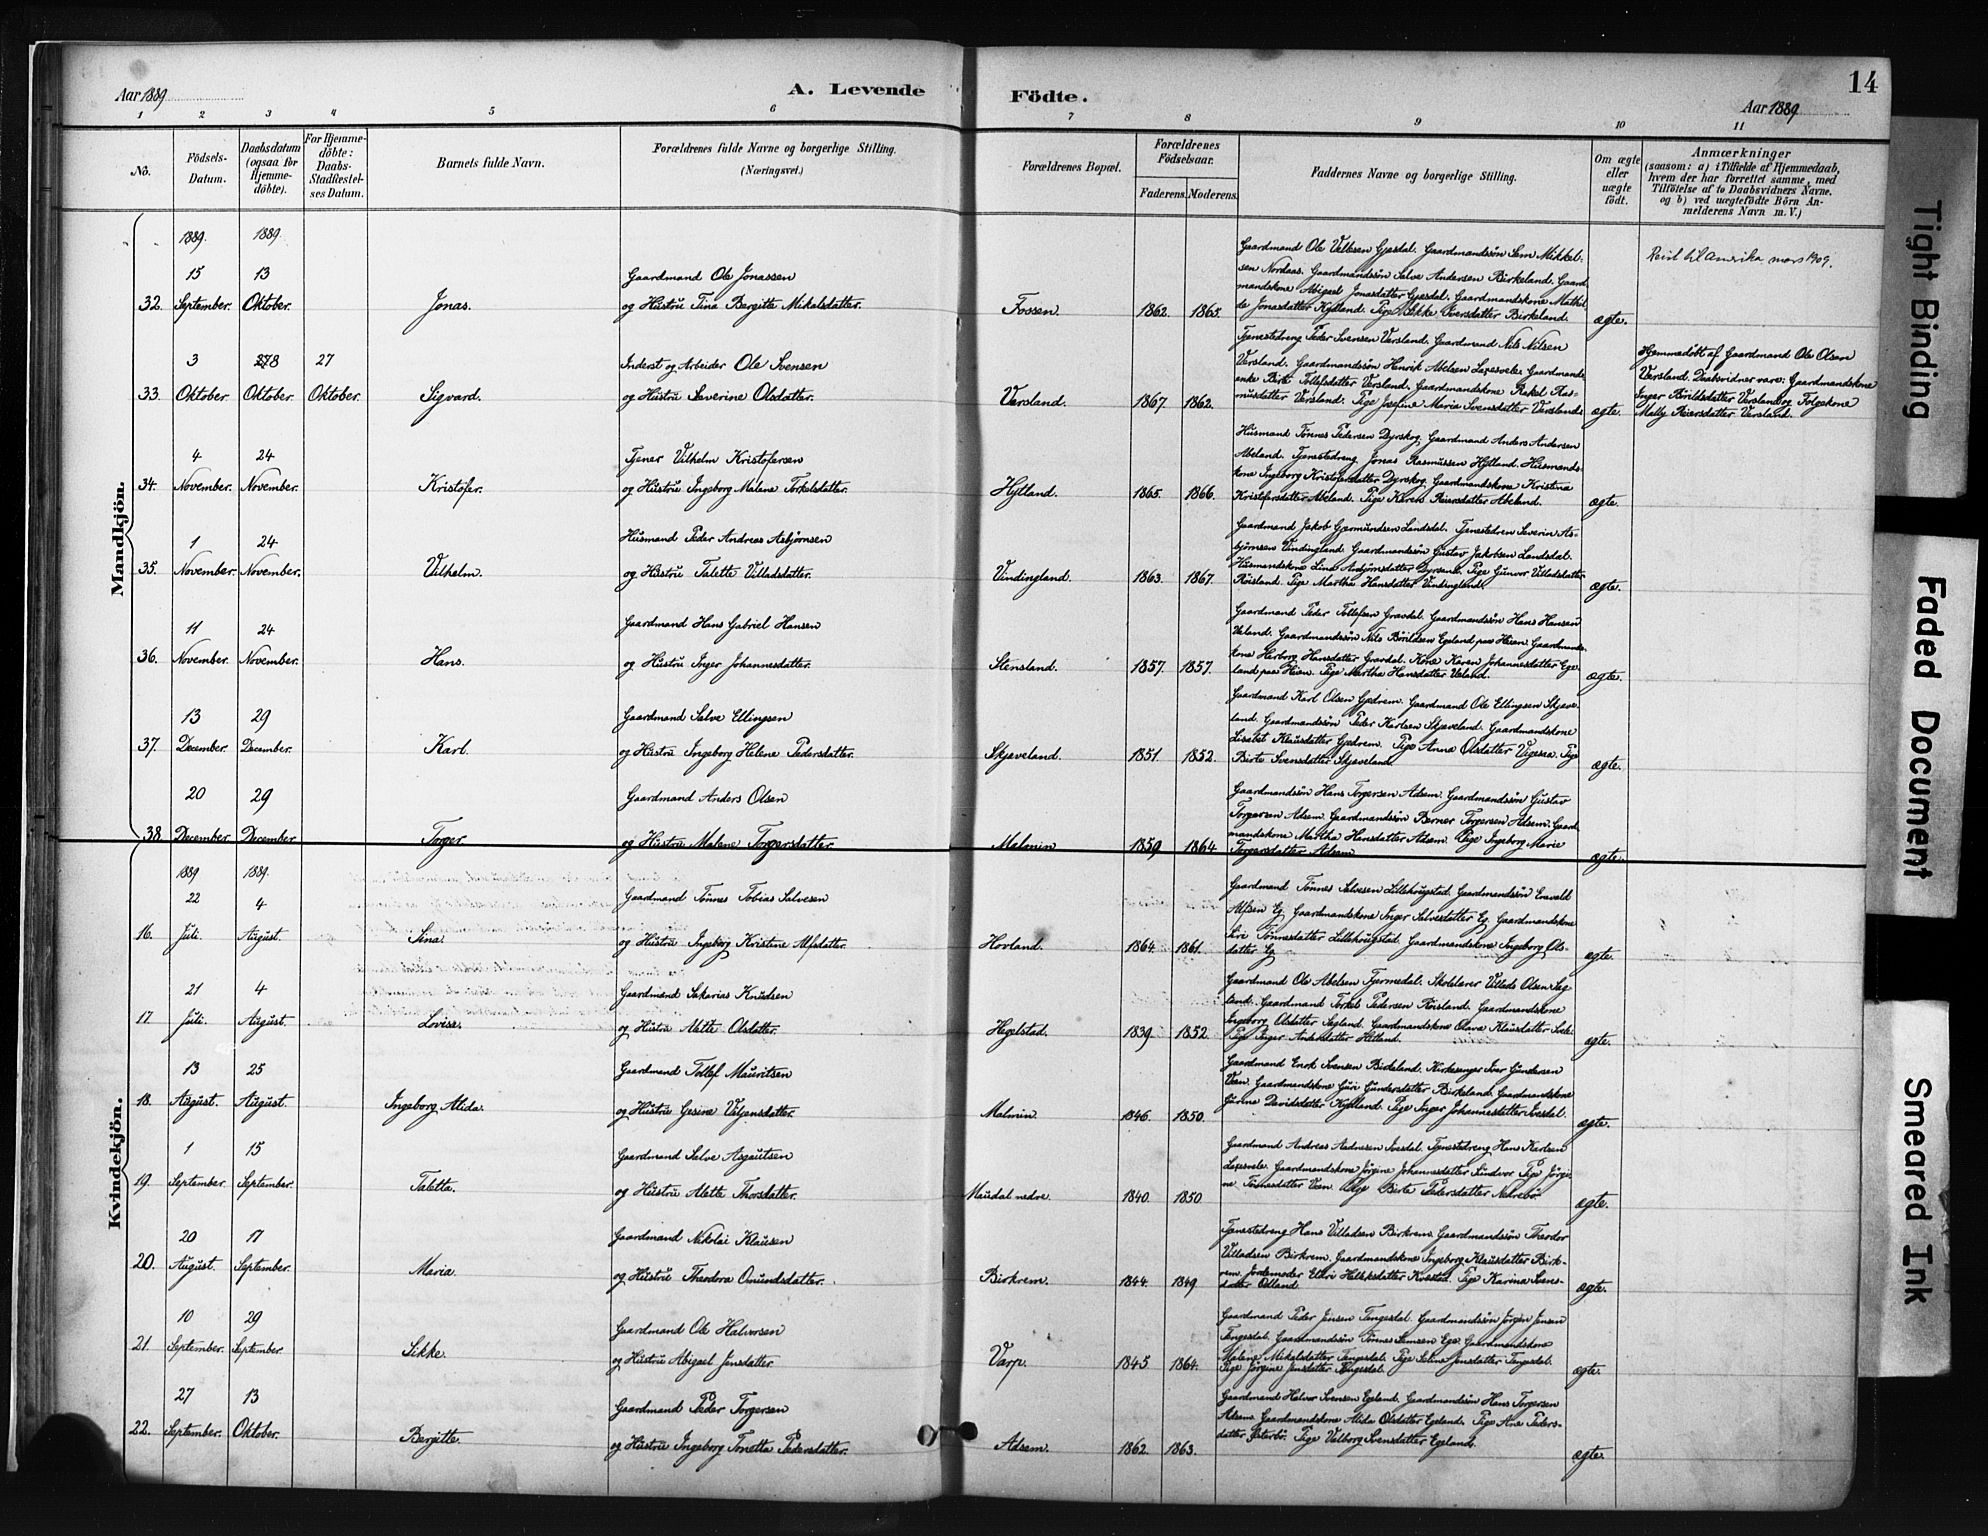 Aar 1889
A. Levende Födte.
14
Aar 1889
1 2 3 4 5 6 7 8 9 10 11
No.
Födsels-Datum.
Daabsdatum (ogsaa for Hjemmedöbte).
For Hjemmedöbte: Daabs-Stadfæstelses Datum.
Barnets fulde Navn.
Forældrenes fulde Navne og borgerlige Stilling. (Næringsvei.)
Forældrenes Bopæl.
Forældrenes Födselsaar.
Faderens. Moderens.
Faddernes Navne og borgerlige Stilling.
Om ægte eller uægte födt.
Anmærkninger
(saasom: a) i Tilfælde af Hjemmedaab, hvem der har forrettet samme, med Tilföielse af to Daabsvidners Navne. og b) ved uægtefödte Börn Anmelderens Navn m. V.)
Mandkjön.
1889. 1889.
Gaardmand Ole Vellesen Gjesdal. Gaardmandssön Sem Mikkel-
15 13 Gaardmand Ole Jonassen
sen Nordaas. Gaardmandssön Salve Andersen Birkeland. Gaard
mandskone Abigael Jonasdatter Gjesdal. Gaardmandskone Mathil-
Reist til Amerika mars 1909.
32. September. Oktober. Jonas. og Hustru Tina Bergitte Mikalsdatter. Fossen. 1862. 1865. de Jonasdatter Kydland. Pige Sikke Iversdatter Birkeland. ægte.
Tjenestedreng Peder Svensen Versland. Gaardmand Nils Nilsen
3 28 27 Inderst og Arbeider Ole Svensen
Versland. Gaardmandssön Henrik Abelsen Laxesvele. Gaardmands
enke Birte Tollefsdatter Versland. Gaardmandskone Rakel Ras-
33. Oktober. Oktober. Oktober. Sigvard. og Hustru Severine Olsdatter. Versland. 1867. 1862. musdatter Versland. Pige Josefine Maria Svensdatter Versland. ægte.
Hjemmedöbt af Gaardmand Ole Olsen
Versland. Daabsvidner vare: Gaardmandskone
Inger Böildsdatter Versland og Folgekone
Mally Reiersdatter Versland.
Husmand Tønnes Pedersen Dyrskog. Gaardmand Anders Andersen
4 24 Tjener Vilhelm Kristofersen
Abeland. Tjenestedreng Jonas Rasmussen Hytland. Husmands-
kone Ingeborg Kristofersdatter Dyrskog. Gaardmandskone Kristina
34. November. November. Kristofer. og Hustru Ingeborg Malene Torkelsdatter. Hytland. 1865. 1866. Kristofersdatter Abeland. Pige Karen Reiersdatter Abeland. ægte.
Gaardmand Jakob Gjermundsen Landsdal. Tjenestedren Severin As-
1 24 Husmand Peder Andreas Asbjørnsen
bjørnsen Vindingland. Gaardmandssön Gustav Jakobsen Landsdal.
Husmandskone Line Asbjørnsdatter Pige Gunvor Villadsdatter
35. November. November. Vilhelm. og Hustru Talette Villadsdatter. Vindingland. 1863. 1867. Röisland. Pige Martha Hansdatter Vindingland. ægte.
Gaardmand Peder Tollefsen Gravdal. Gaardmandssön Hans Hansen
11 24 Gaardmand Hans Gabriel Hansen
Veland. Gaardmandssön Nils Böildsen Egeland paa Heien. Gaardmands-
kone Herborg Hansdatter Gravdal. Kone Karen Johannesdatter Ege-
36. November. November. Hans. og Hustru Inger Johannesdatter. Stensland. 1857. 1857. land paa Heien. Pige Martha Hansdatter Veland. ægte.
Gaardmand Karl Olsen Gjedrem. Gaardmand Ole Ellingsen Skjæve-
13 29 Gaardmand Salve Ellingsen
land. Gaardmandssön Peder Karlsen Skjæveland. Gaardmandskone
Lisabet Klausdatter Gjedrem. Pige Anna Olsdatter Vigesaa. Pige
37. December. December. Karl. og Hustru Ingeborg Helene Pedersdatter. Skjæveland. 1851. 1852. Birte Svensdatter Skjæveland. ægte.
Gaardmandssön Hans Torgersen Adsem. Gaardmandssön Gustav
20 29 Gaardmand Anders Olsen
Torgersen Adsem. Gaardmandssön Berner Torgersen Adsem. Gaard
mandskone Martha Hansdatter Adsem. Pige Ingeborg Marie
38. December. December. Torger. og Hustru Malene Torgersdatter. Malmin. 1859 1864 Torgersdatter Adsem. ægte.
Kvindekjön.
1889 1889.
Gaardmand Tønnes Salvesen Lillehougstad. Gaardmandssön Enevald
22 4 Gaardmand Tønnes Tobias Salvesen
Alfsen Eg. Gaardmandskone Inger Salvesdatter Eg. Gaardmandskone
Siri Tønnesdatter Lillehougstad. Gaardmandskone Ingeborg Ols-
16. Juli. August. Sina. og Hustru Ingeborg Kristine Alfsdatter. Hovland. 1864. 1861. datter Eg. ægte.
Gaardmand Ole Abelsen Fjermedal. Skolelærer Villads Olsen Seg
21 4 Gaardmand Sakarias Knudsen
land. Gaardmand Torkel Pedersen Röisland. Gaardmandskone
Ingeborg Olsdatter Segland. Gaardmandskone Olava Klausdatter
17 Juli. August. Lovise. og Hustru Alette Olsdatter. Hegelstad. 1839. 1852. Pige Inger Hetland. ægte.
Gaardmand Enok Svensen Birkeland. Kirkesanger Iver Gundersen
13 25 Gaardmand Tollef Mauritsen
Veen. Gaardmandskone Guri Gundersdatter Birkeland. Gaardmandskone
18. August. August. Ingeborg Alida. og Hustru Gesine Viljensdatter. Malmin. 1846. 1850. Gurine Davidsdatter Kydland. Pige Inger Johannesdatter Ivesdal. ægte.
Gaardmand Andreas Aadnesen Ivesdal. Tjenestedreng Hans Karlsen
1 15 Gaardmand Salve Asgautsen
Laxesvele. Gaardmandskone Jörgine Johannesdatter Pige Jörgi-
19. September. September. Taletta. og Hustru Alette Thorsdatter. Maudal nedre. 1840. 1850 ne Tönnesdatter Veen. Pige Birte Pedersdatter Netrebö. ægte.
Tjenestedreng Hans Villadsen Birkrem. Gaardmandssön Theodor
20 17 Gaardmand Nikolai Klausen
Villadsen Birkrem. Gaardmandskone Ingeborg Klausdatter Birk-
20. August. September. Maria. og Hustru Theodora Omundsdatter. Birkrem. 1844. 1849 rem. Jordemoder Pige Karina Svens-
datter Odland. ægte.
Gaardmand Peder Jensen Tengesdal. Gaardmandssön Jörgen Jensen
10 29 Gaardmand Ole Halvorsen
Tengesdal. Gaardmandssön Tönnes Semsen Ege. Gaardmandskone
21. September. September. Sikke. og Hustru Abigael Jensdatter Varp. 1845 1864. Malene Mikalsdatter Tengesdal. Pige Seline Jensdatter Tengesdal.
Pige Jörgine Jensdatter Tengesdal. ægte.
Gaardmand Halvor Svensen Egeland. Gaardmandssön Hans Torgersen
27 13 Gaardmand Peder Torgersen
Adsem. Gaardmandskone Alida Olsdatter Egeland. Pige Ane Peders-
22. September. Oktober. Bergitte. og Hustru Ingeborg Tonetta Pedersdatter. Adsem. 1862. 1863. datter Österbö. Pige Valborg Svensdatter Egeland. ægte.
Tight Binding
Faded Document
Smeared Ink